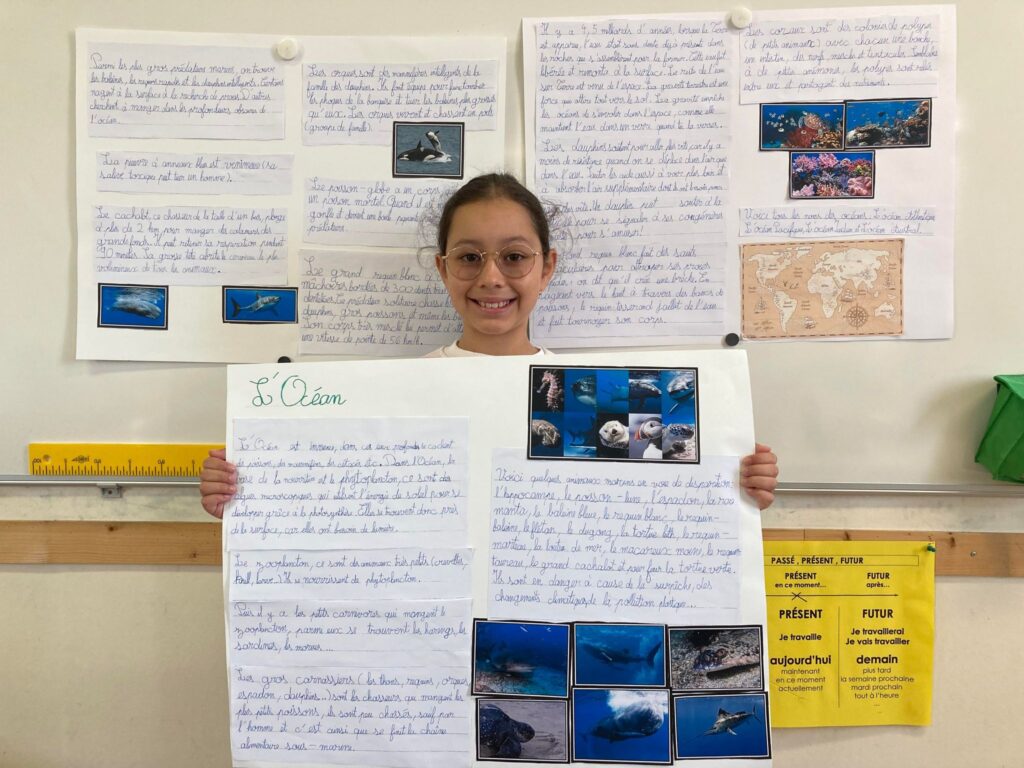 Parmi les plus gros prédateurs marins, on trouve
les baleines, les requins
nagent à la surface à la recherche de proies. D'autres
cherchent à manger dans les profondeurs obscures de
l'océan.
La pieuvre à anneaux bleus est venimeuse (sa
salive toxique peut tuer un homme).
Le cachalot, ce chasseur de la taille d'un bus, plonge
à plus de 2 km pour manger des calamars des
grands fonds. Il peut retenir sa respiration pendant
90 minutes. Sa grosse tête abrite le cerveau le plus
volumineux de tous les animaux.
Les orques sont des mammifères intelligents de la
famille des dauphins. Ils font équipe pour
les phoques de la banquise et tuer les baleines plus grosses
qu'eux. Les orques vivent et chassent en pods
(groupe de famille).
Le poisson-globe a un corps
un poison mortel. Quand il
gonfle et devient une boule
prédateur.
Le grand requin blanc a
mâchoires bordées de 300 dents
dentelées. Ce prédateur solitaire chasse
dauphins, gros poissons et même les
Son corps très musclé lui permet d'
une vitesse de pointe de 56 km/h.
Il y a 4,5 milliards d'années, lorsque la Terre
est apparue, l'eau était sans doute déjà présente dans
les roches qui s'assemblèrent pour la former. Cette eau fut
libérée et remonta à la surface. Le reste de l'eau
sur Terre est venu de l'espace. La gravité terrestre est une
force qui attire tout vers le sol. La gravité empêche
les océans de s'envoler dans l'espace, comme elle
maintient l'eau dans un verre quand tu la verses.
Les dauphins sautent pour aller plus vite car il y a
moins de résistance quand on se déplace dans l'air que
dans l'eau. Sauter les aide aussi à voir plus loin et
à absorber l'air supplémentaire dont ils ont besoin pour
vite. Un dauphin peut sauter à la
pour se signaler à ses congénères
pour s'amuser!
requin blanc fait des sauts
pour attraper ses proies
on dit qu'il crée une brèche. En
nageant vers le haut à travers des bancs de
poissons, le requin tisserand jaillit de l'eau
et fait tournoyer son corps.
Les coraux sont des colonies de polypes
(de petits animaux) avec chacun une bouche,
un intestin, des nerfs, muscles et tentacules. Semblables
à de petits anémones, les polypes sont reliés
entre eux et partagent des nutriments.
Voici tous les noms des océans : L'océan Atlantique
L'océan Pacifique, L'océan Indien et l'océan Austral.
L'Océan
L'Océan est immense, dans ces eaux profondes se cachent
des poissons, des mammifères, des cétacés etc. Dans l'Océan, la
base de la nourriture est le phytoplancton, ce sont des
algues microscopiques qui utilisent l'énergie du soleil pour se
développer grâce à la photosynthèse. Elles se trouvent donc près
de la surface, car elles ont besoin de lumière.
Le zooplancton, ce sont des animaux très petits (crevettes,
Krill, larves...). Ils se nourrissent de phytoplancton.
Puis il y a les petits carnivores qui mangent le
zooplancton, parmi eux se trouvent les harengs, les
sardines, les morues...
Les gros carnassiers (les thons, requins, orques,
espadon, dauphins...) sont les chasseurs qui mangent les
plus petits poissons, ils sont peu chassés, sauf par
l'homme et c'est ainsi que se finit la chaîne
alimentaire sous-marine.
Voici quelques animaux marins en voie de disparation :
l'hippocampe, le poisson-lune, l'espadon, la raie
manta, la baleine bleue, le requin blanc, le requin-
baleine, le flétan, le dugong, la tortue luth, le requin-
marteau, la loutre de mer, le macareux moine, le requin
taureau, le grand cachalot et pour finir la tortue verte.
Ils sont en danger à cause de la surpêche, des
changements climatiques, de la pollution plastique...
PASSÉ, PRÉSENT, FUTUR
PRÉSENT
en ce moment...
FUTUR
après...
PRÉSENT
Je travaille
aujourd'hui
maintenant
en ce moment
actuellement
...
FUTUR
Je travaillerai
Je vais travailler
demain
plus tard
la semaine prochaine
mardi prochain
tout à l'heure
...